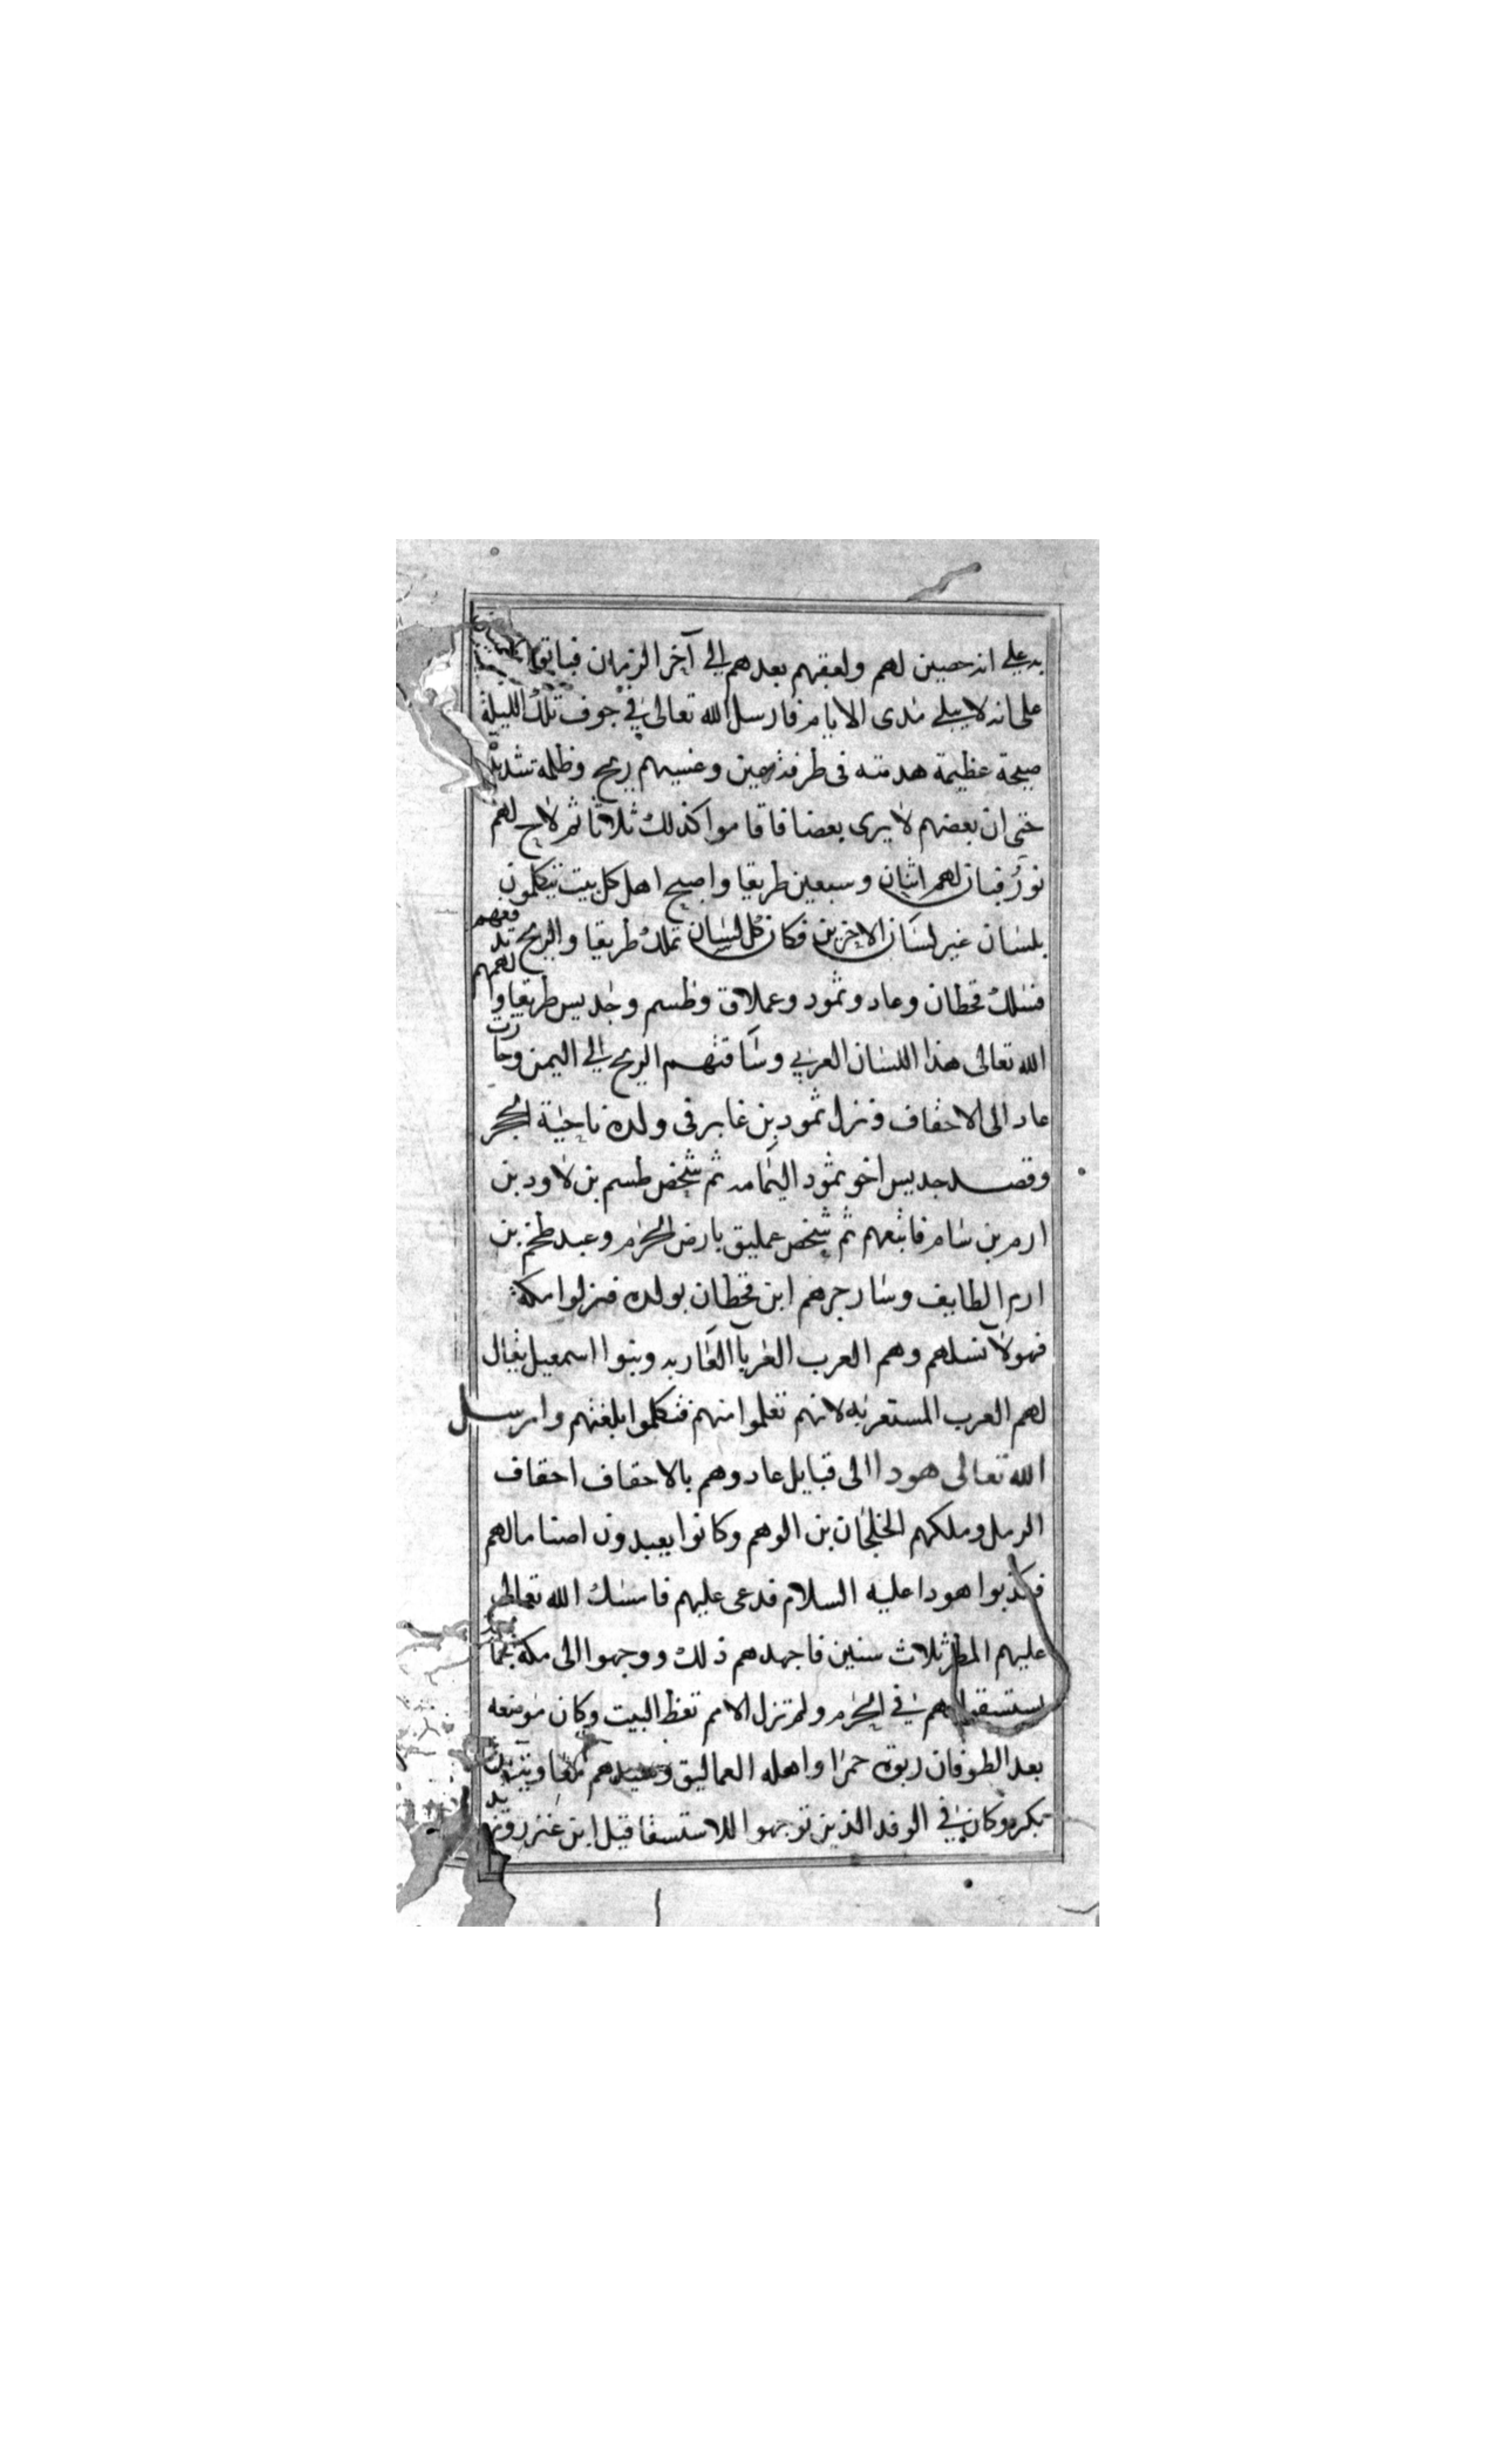 به علي انه حصين لهم ولعقبهم بعدهم الي آخر الزمان فباتوا
على انه لا يبلي مدى الايام فارسل الله تعالى في جوف تلك الليلة
صيحة عظيمة هدمته في طرفة عين وغشيهم ريح وظلمة شديدة
حتى ان بعضهم لا يرى بعضا فاقاموا كذلك ثلاثا ثم لاح لهم
نور فبان لهم اثنان وسبعين طريقا واصبح اهل كل بيت يتكلمون
بلسان غير لسان الاخرين فكان كل لسان تملك طريقا والريح تدفعهم
فسلك قحطان وعاد وثمود وعملاق وطسم وجديس طريقا والهمهم
الله تعالى هذا اللسان العربي وساقتهم الريح الي اليمن وجازت
عاد الى الاحقاف ونزل ثمود بن غابر في ولده ناحية الحجر
وقصد جديس اخو ثمود اليمامه ثم شخص طسم بن لاود بن
ارم بن سام فاتبعهم ثم شخص عمليق بارض الحرم وعبد ضخم بن
ارم الطايف وسار جرهم ابن قحطان بولده فنزلوا مكة
فهولا نسلهم وهم العرب العربا العاربه وبنوا اسمعيل يقال
لهم العرب المستعربه لانهم تعلموا منهم فتكلموا بلغتهم وارسل
الله تعالى هودا الى قبايل عاد وهم بالاحقاف احقاف
الرمل وملكهم الخلجان بن الوهم وكانوا يعبدون اصناما لهم
فكذبوا هودا عليه السلام فدعى عليهم فامسك الله تعالى
عليهم المطر ثلاث سنين فاجهدهم ذلك ووجهوا الى مكة
يستسقي لهم في الحرم ولم تزل الامم تعظ البيت وكان موضعه
بعد الطوفان ربوة حمرا واهله العماليق وسيدهم
بكر وكان في الوفد الذين توجهوا للاستسقا قيل ابن عنز